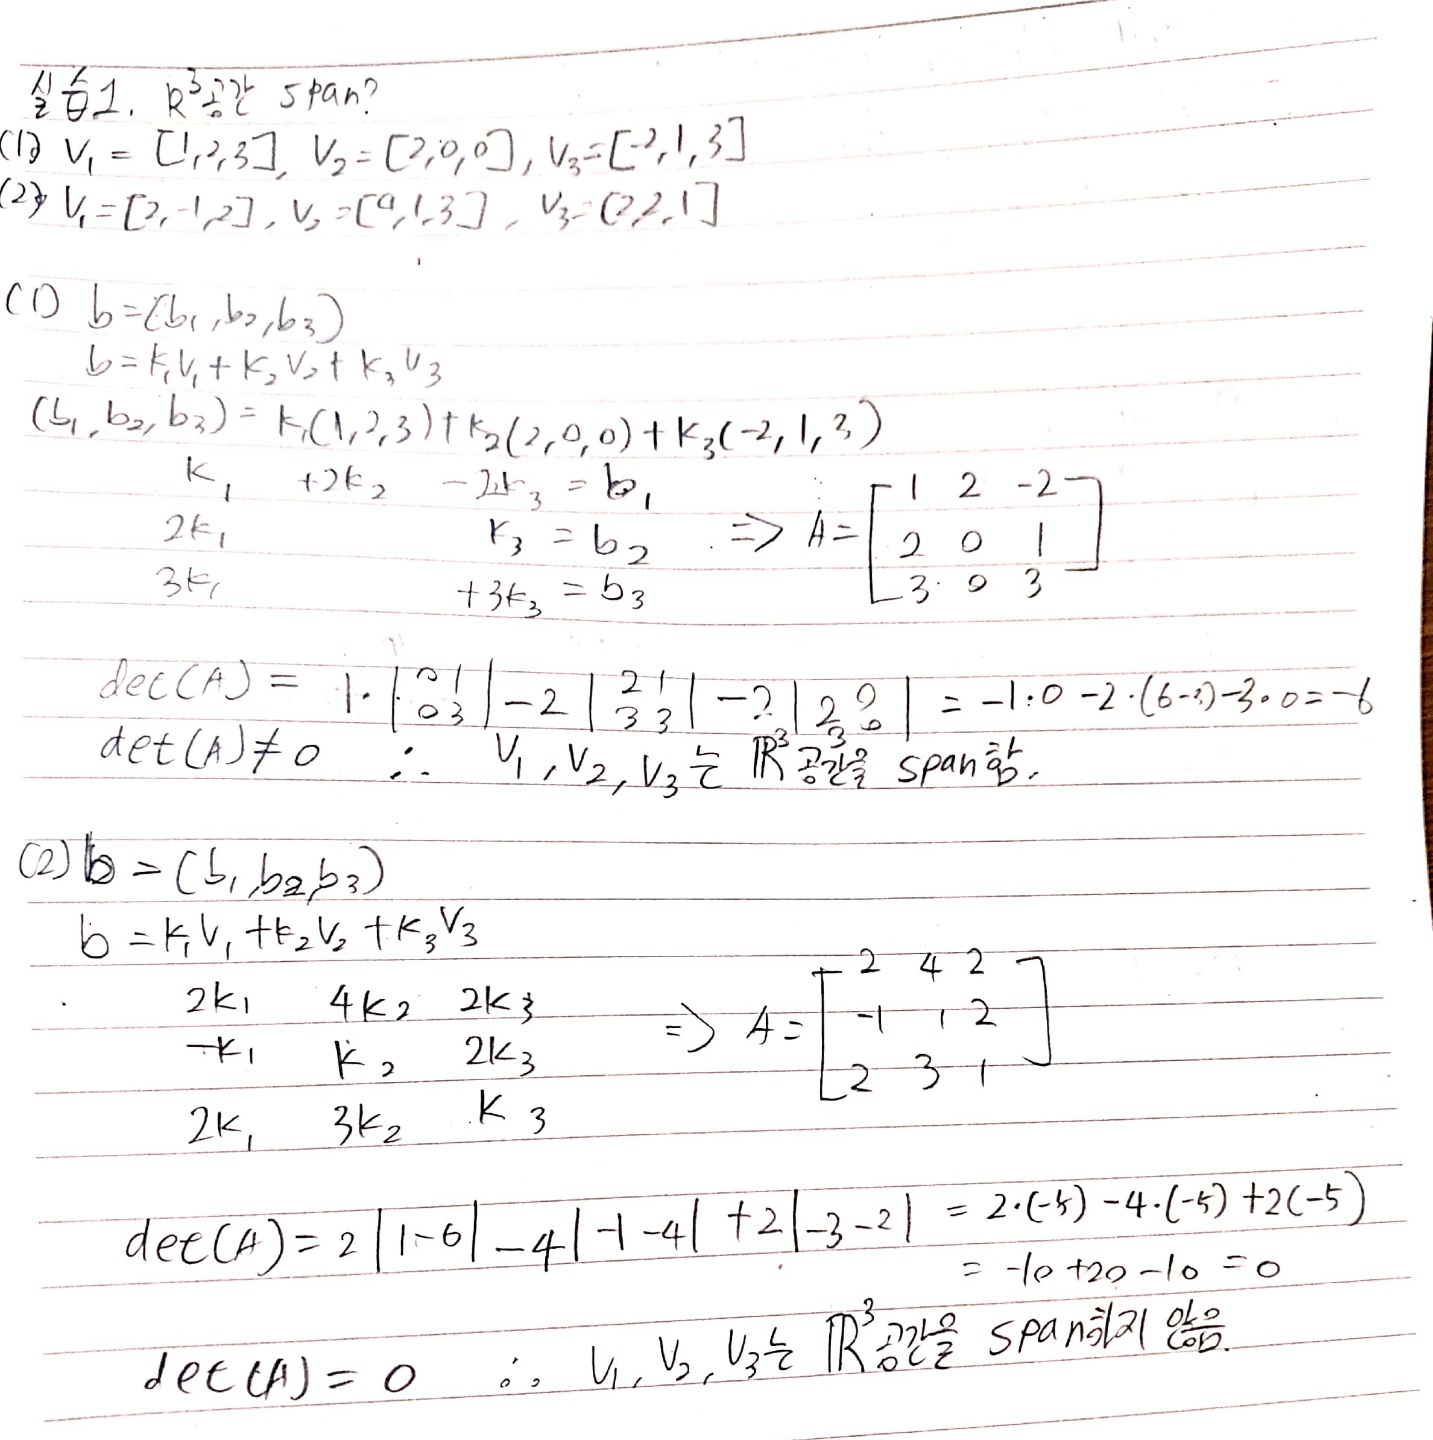 실습1. R³공간 span?
(1) V₁ = [1,2,3], V₂ = [2,0,0], V₃ = [-2,1,3]
(2) V₁ = [2,-1,2], V₂ = [4,1,3], V₃ = [2,2,1]
(1) b = (b₁, b₂, b₃)
b = k₁V₁ + k₂V₂ + k₃V₃
(b₁, b₂, b₃) = k₁(1,2,3) + k₂(2,0,0) + k₃(-2,1,3)
k₁ +2k₂ -2k₃ = b₁
2k₁ k₃ = b₂ => A = [1 2 -2
2 0 1
3k₁ +3k₃ = b₃ 3 0 3]
det(A) = 1·|0 1 0 3| -2|2 1 3 3| -2|2 0 3 0| = -1·0 -2·(6-3) -3·0 = -6
det(A) ≠ 0 ∴ V₁, V₂, V₃는 ℝ³공간을 span함.
(2) b = (b₁, b₂, b₃)
b = k₁V₁ + k₂V₂ + k₃V₃
2k₁ 4k₂ 2k₃ [2 4 2
-k₁ k₂ 2k₃ => A = -1 1 2
2k₁ 3k₂ k₃ 2 3 1]
det(A) = 2|1-6| -4|-1-4| +2|-3-2| = 2·(-5) -4·(-5) +2(-5)
= -10 +20 -10 = 0
det(A) = 0 ∴ V₁, V₂, V₃는 ℝ³공간을 span하지 않음.